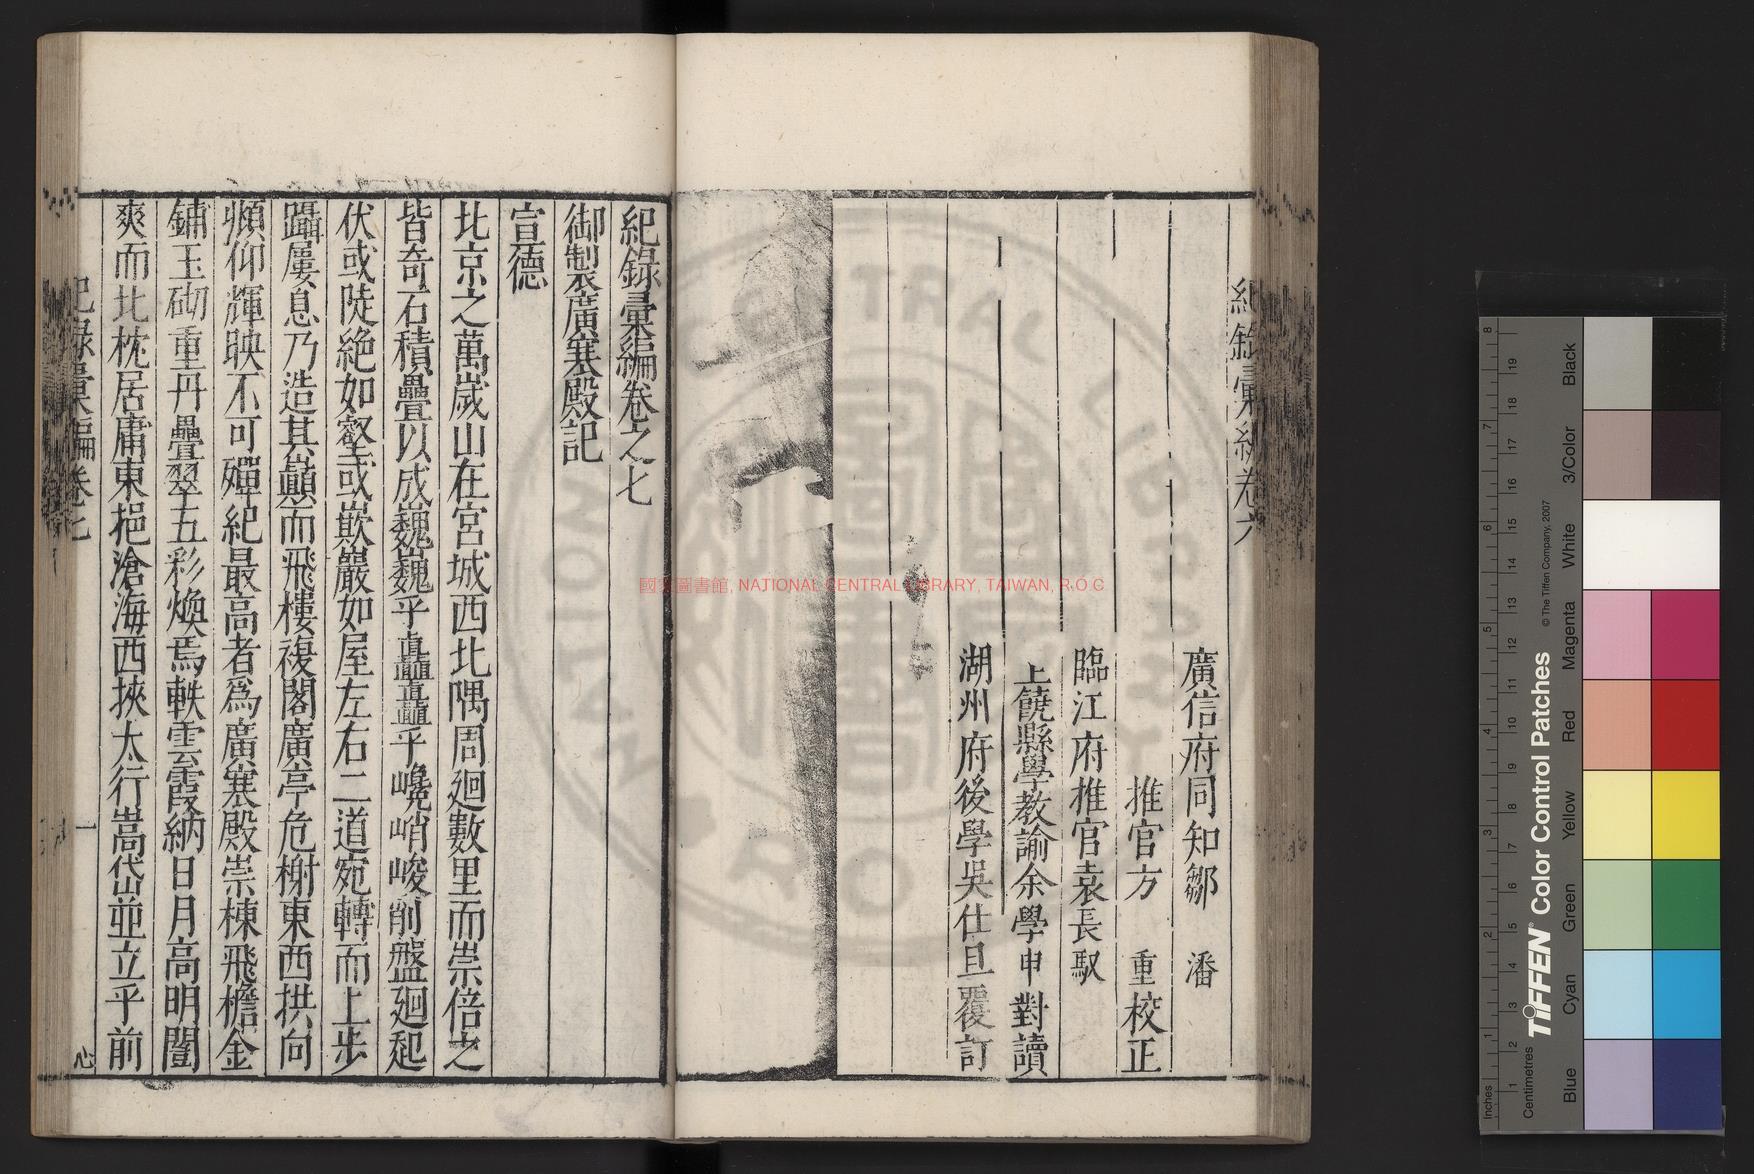 紀錄彙編卷六
廣信府同知鄒 潘
推官方 重校正
臨江府推官袁長馭
上饒縣學教諭余學申對讀
湖州府後學吳仕旦覆訂
紀錄彙編卷之七
御製廣寒殿記
宣德
北京之萬歲山在宮城西北隅周廻數里而崇倍之
皆奇石積疊以成巍巍乎矗矗乎巉峭峻削盤廻起
伏或陡絶如壑或嵌巖如屋左右二道宛轉而上步
躡屢息乃造其巔而飛樓複閣廣亭危榭東西拱向
頫仰輝映不可殫紀最高者爲廣寒殿崇棟飛檐金
鋪玉砌重丹疊翠五彩煥焉軼雲霞納日月高明闓
爽而北枕居庸東挹滄海西挾太行嵩岱並立乎前
紀錄彙編卷七
一
心
國家圖書館, NATIONAL CENTRAL LIBRARY, TAIWAN, R.O.C
TIFFEN Color Control Patches
© The Tiffen Company, 2007
Inches
Centimetres
Blue
Cyan
Green
Yellow
Red
Magenta
White
3/Color
Black